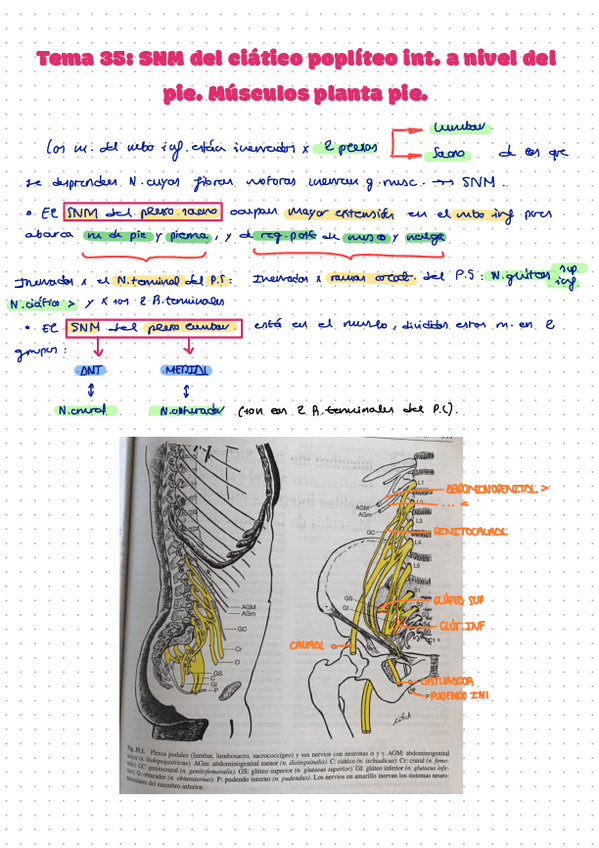 Tema 35: SNM del ciático poplíteo int. a nivel del
pie. Músculos planta pie.
Lumbar
Los m. del mbo inf. están inervados x 2 plexos
Sacro
de los que
se desprenden N. cuyas fibras motoras inervan g. musc. → SNM.
• El SNM del plexo sacro ocupan mayor extensión en el mbo inf pues
abarca m. de pie y pierna, y de reg. post de muslo y nalga
Inervados x el N. terminal del P.S:
N. ciático > y x sus 2 R. terminales
Inervados x ramas colat. del P.S: N. glúteos sup
inf
• El SNM del plexo lumbar está en el muslo, divididos estos m. en 2
grupos:
ANT
MEDIAL
N. crural
N. obturador (son las 2 R. terminales del P.L).
L1
L3
L4
L5
AGM
AGm
GC
GS
GI
AGM
AGm
GC
Cr
O
GS
C
GI
P
ABDOMINOGENITAL >
... <
GENITOCRURAL
GLÚTEO SUP
GLÚT. INF
CRURAL
OBTURADOR
PUDENDO INT
Fig. 35.1. Plexos podales (lumbar, lumbosacro, sacrococcígeo) y sus nervios con neuronas α y γ. AGM: abdominogenital
mayor (n. iliohipogastricus). AGm: abdominogenital menor (n. ilioinguinalis). C: ciático (n. ischiadicus). Cr: crural (n. femo-
ralis). GC: genitocrural (n. genitofemoralis). GS: glúteo superior (n. glutaeus superior). GI: glúteo inferior (n. glutaeus infe-
rior). O: obturador (n. obturatorius). P: pudendo interno (n. pudendus). Los nervios en amarillo inervan los sistemas neuro-
musculares del miembro inferior.